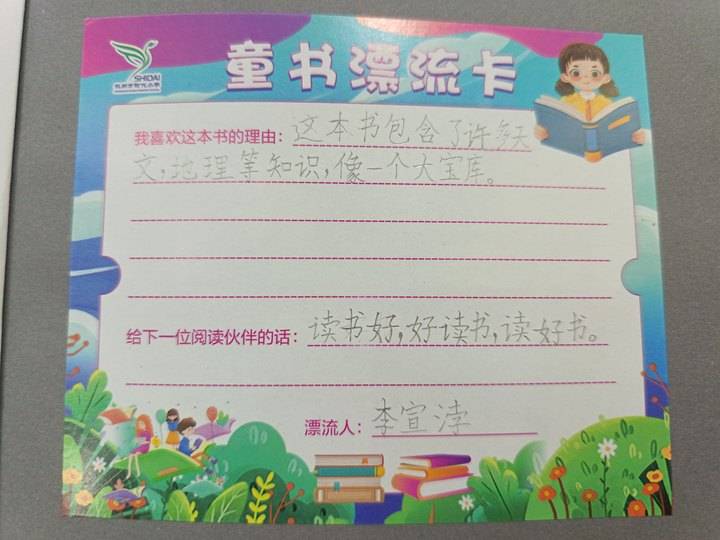 SHIDAI
童书漂流卡
我喜欢这本书的理由：这本书包含了许多天
文，地理等知识，像一个大宝库。
给下一位阅读伙伴的话：读书好，好读书，读好书。
漂流人：李宣浡